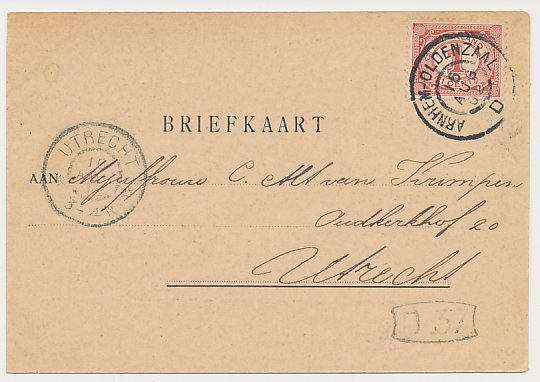 ARNHEM-OLDENZAAL D
BRIEFKAART
UTRECHT
AAN Mejuffrouw C. Alt van Krimpen
Oudkerkhof 20
Utrecht
37